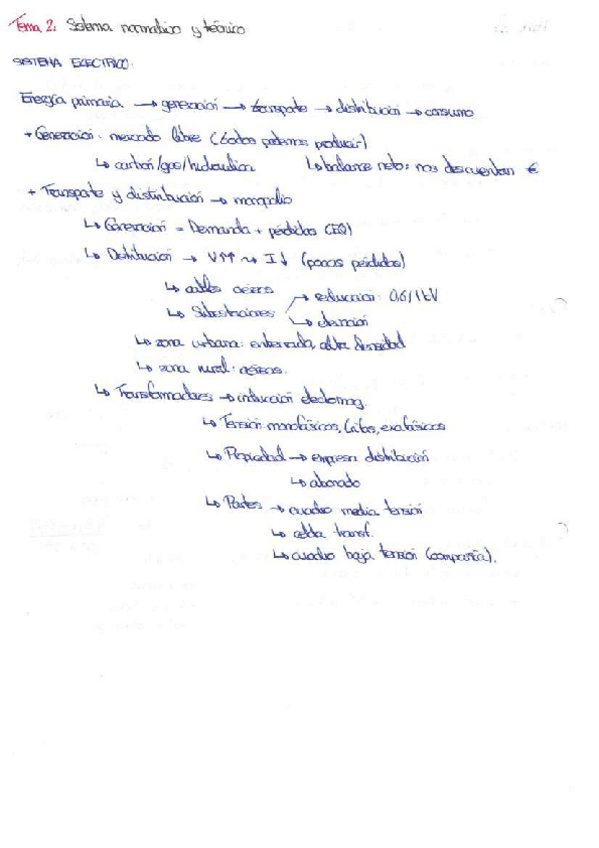 Tema 2: Sistema normativo y teórico
SISTEMA ELÉCTRICO:
Energía primaria → generación → transporte → distribución → consumo
+ Generación: mercado libre (todos podemos producir)
↳ carbón/gas/hidraúlica ↳ balance neto: nos descuentan €
+ Transporte y distribución → monopolio
↳ Generación = Demanda + pérdidas (EQ)
↳ Distribución → V↑↑ ⇝ I↓ (pocas pérdidas)
↳ cables aéreos
↳ Subestaciones → reducción: 0,6/1kV
↳ elevación
↳ zona urbana: enterrada, alta densidad
↳ zona rural: aéreas.
↳ Transformadores → inducción electromag.
↳ Tensión: monofásicos, trifas, exafásicos
↳ Propiedad → empresa distribución
↳ abonado
↳ Partes → cuadro media tensión
↳ celda transf.
↳ cuadro baja tensión (compañía).